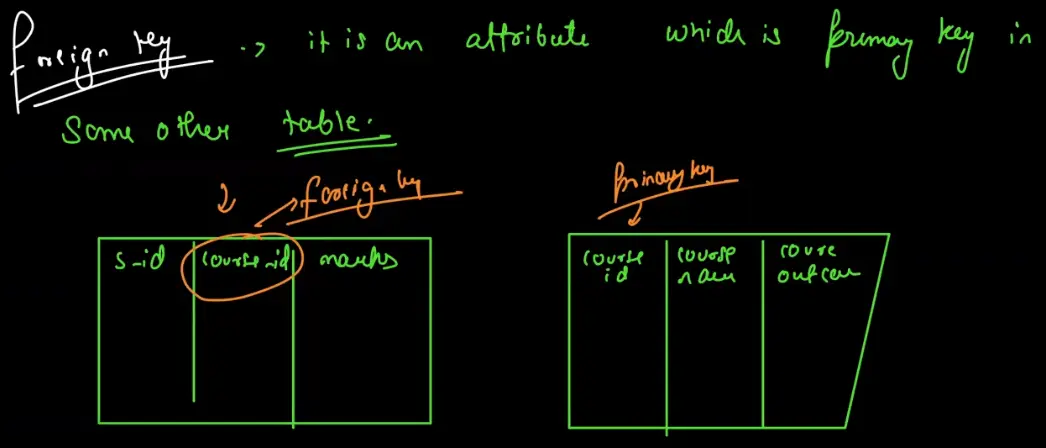 Foreign key -> it is an attribute which is primary key in
Some other table.
foreign key
Primary key
s_id course_id marks
course id course name course outcome